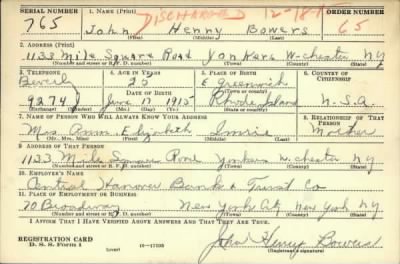 SERIAL NUMBER
1. NAME (Print)
ORDER NUMBER
DISCHARGED
765
John Henry Bowers
65
(First) (Middle) (Last)
2. ADDRESS (Print)
1133 Mile Square Road Yonkers W-chester NY
(Number and street or R. F. D. number) (Town) (County) (State)
3. TELEPHONE
4. AGE IN YEARS
5. PLACE OF BIRTH
6. COUNTRY OF CITIZENSHIP
25
E Greenwich
DATE OF BIRTH
(Town or county)
9274
June 17 1915
Rhode Island
U.S.A.
(Exchange) (Number)
(Mo.) (Day) (Yr.)
(State or country)
7. NAME OF PERSON WHO WILL ALWAYS KNOW YOUR ADDRESS
8. RELATIONSHIP OF THAT PERSON
Mrs. Ann Elizabeth
Mother
(Mr., Mrs., Miss) (First) (Middle) (Last)
9. ADDRESS OF THAT PERSON
1133 Mile Square Road Yonkers W. chester NY
(Number and street or R. F. D. number) (Town) (County) (State)
10. EMPLOYER'S NAME
Central Hanover Bank & Trust Co
11. PLACE OF EMPLOYMENT OR BUSINESS
70 Broadway New York City New York NY
(Number and street or R. F. D. number) (Town) (County) (State)
I AFFIRM THAT I HAVE VERIFIED ABOVE ANSWERS AND THAT THEY ARE TRUE.
REGISTRATION CARD
D. S. S. Form 1
(over)
John Henry Bowers
(Registrant's signature)